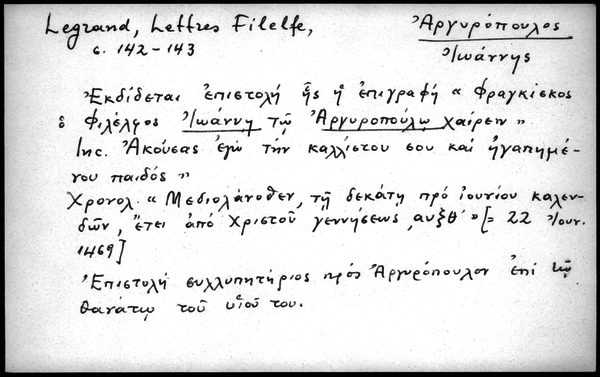 Legrand, Lettres Filelfe,
Ἀργυρόπουλος
c. 142-143
Ἰωάννης
Ἐκδίδεται ἐπιστολή ἧς ἡ ἐπιγραφή « Φραγκίσκος
ὁ Φιλέλφος Ἰωάννῃ τῷ Ἀργυροπούλῳ χαίρειν »
Inc. Ἀκούσας ἐγώ τήν καλλίστου σου καί ἠγαπημέ-
νου παιδός »
Χρονολ. « Μεδιολάνοθεν, τῇ δεκάτῃ πρό ἰουνίου καλεν-
δῶν, ἔτει ἀπό Χριστοῦ γεννήσεως ͵αυξθʹ » [= 22 Ἰουν.
1469]
Ἐπιστολή συλλυπητήριος πρός Ἀργυρόπουλον ἐπί τῷ
θανάτῳ τοῦ υἱοῦ του.